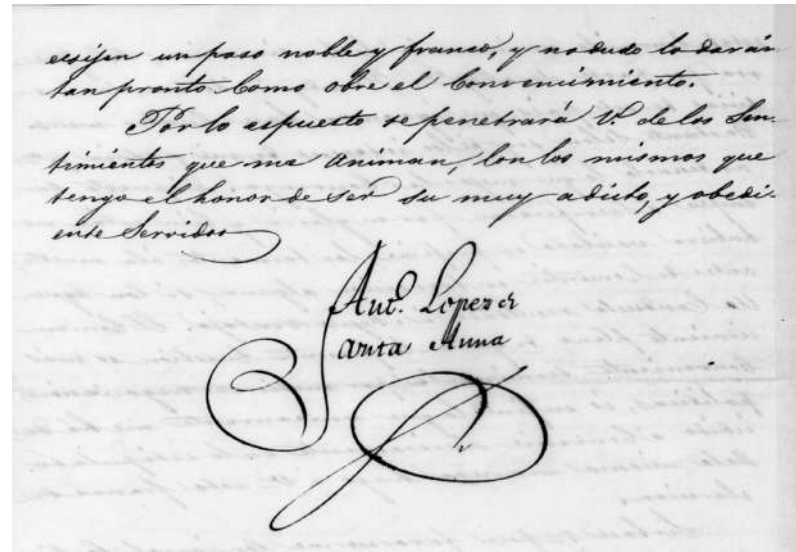 ecsijen un paso noble y franco, y no dudo lo darán
tan pronto como obre el convencimiento.
Por lo espuesto se penetrará V. de los Sen-
timientos que me animan, con los mismos que
tengo el honor de ser su muy adicto, y obedi-
ente Servidor
Anto. Lopez de
Santa Anna